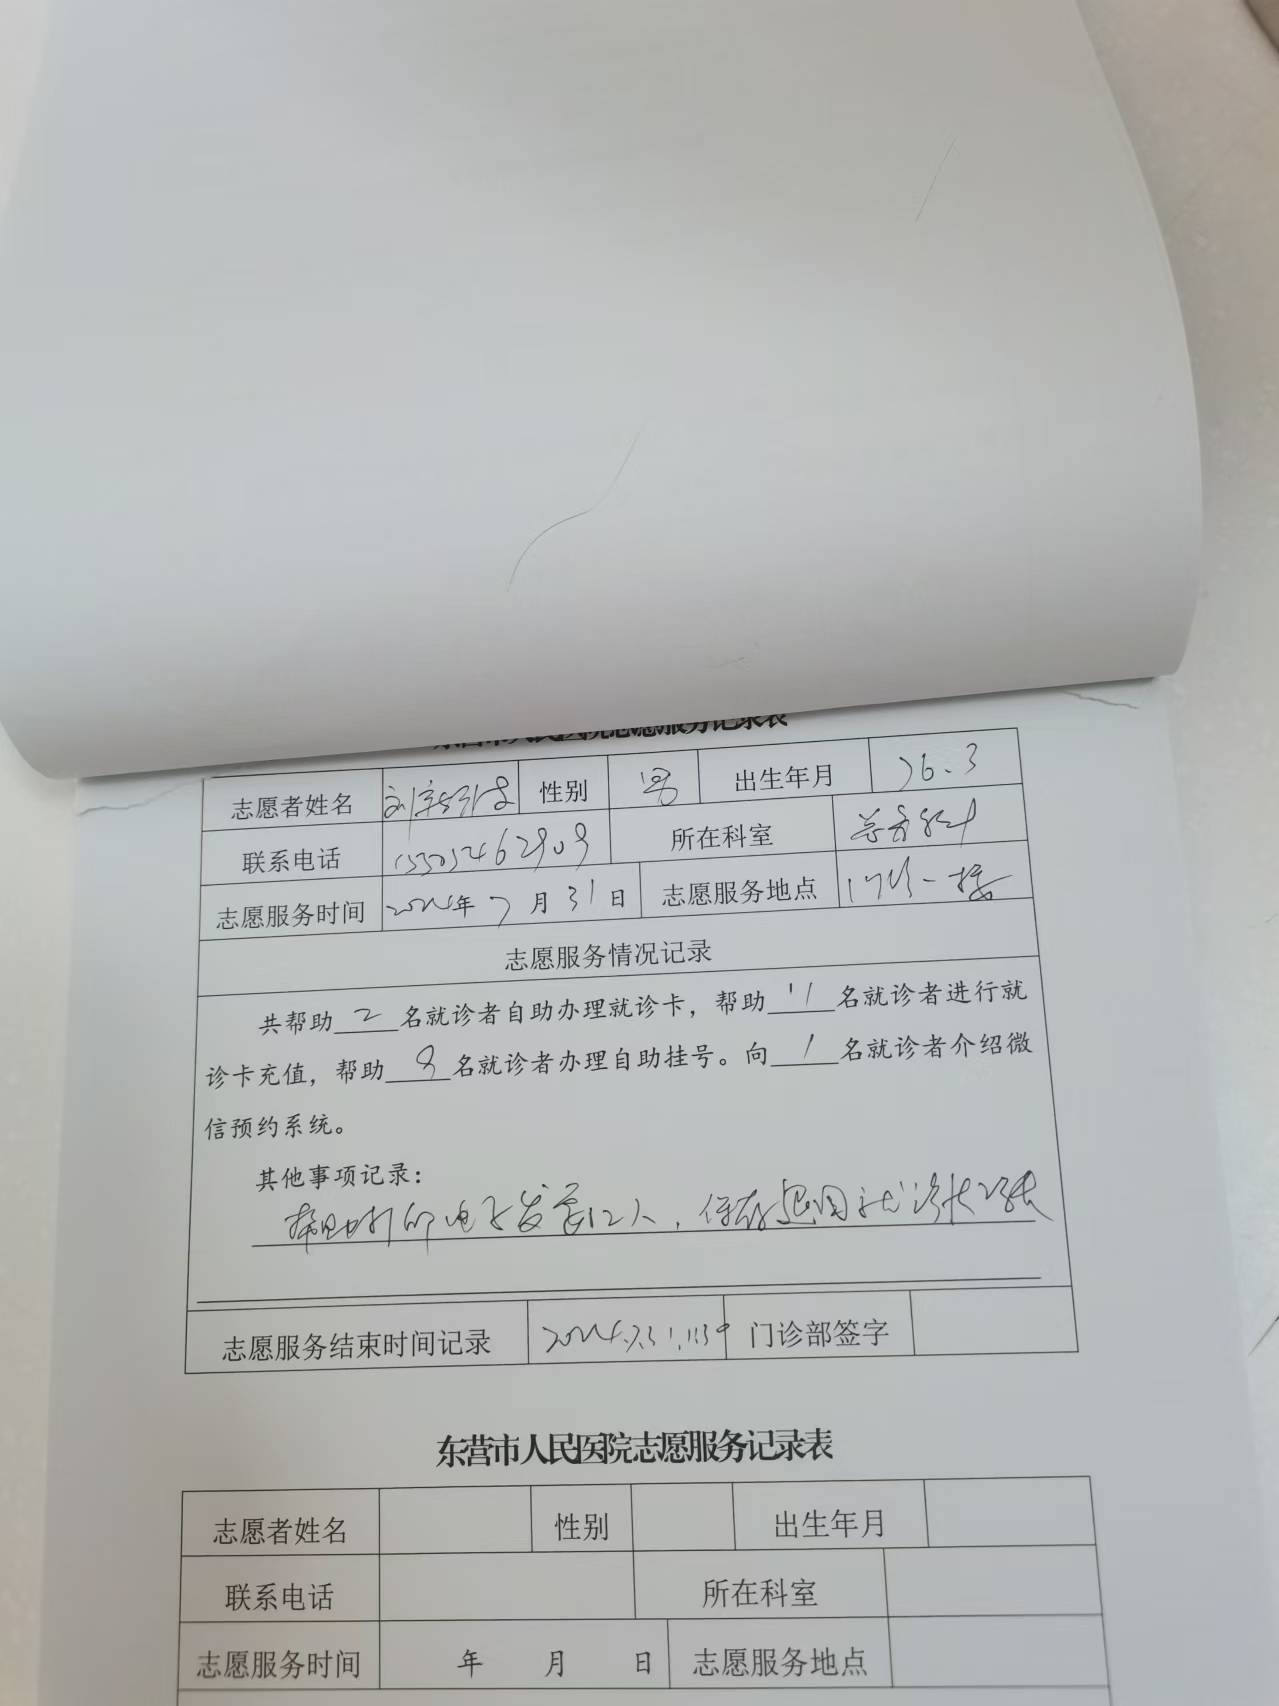 东营市人民医院志愿服务记录表
志愿者姓名 刘 性别 男 出生年月 76.3
联系电话 所在科室 总务科
志愿服务时间 2024年7月31日 志愿服务地点 门诊一楼
志愿服务情况记录
共帮助 2 名就诊者自助办理就诊卡，帮助 11 名就诊者进行就
诊卡充值，帮助 8 名就诊者办理自助挂号。向 1 名就诊者介绍微
信预约系统。
其他事项记录：
帮助打印电子发票12人，
志愿服务结束时间记录 2024.7.31.1130 门诊部签字
东营市人民医院志愿服务记录表
志愿者姓名 性别 出生年月
联系电话 所在科室
志愿服务时间 年 月 日 志愿服务地点